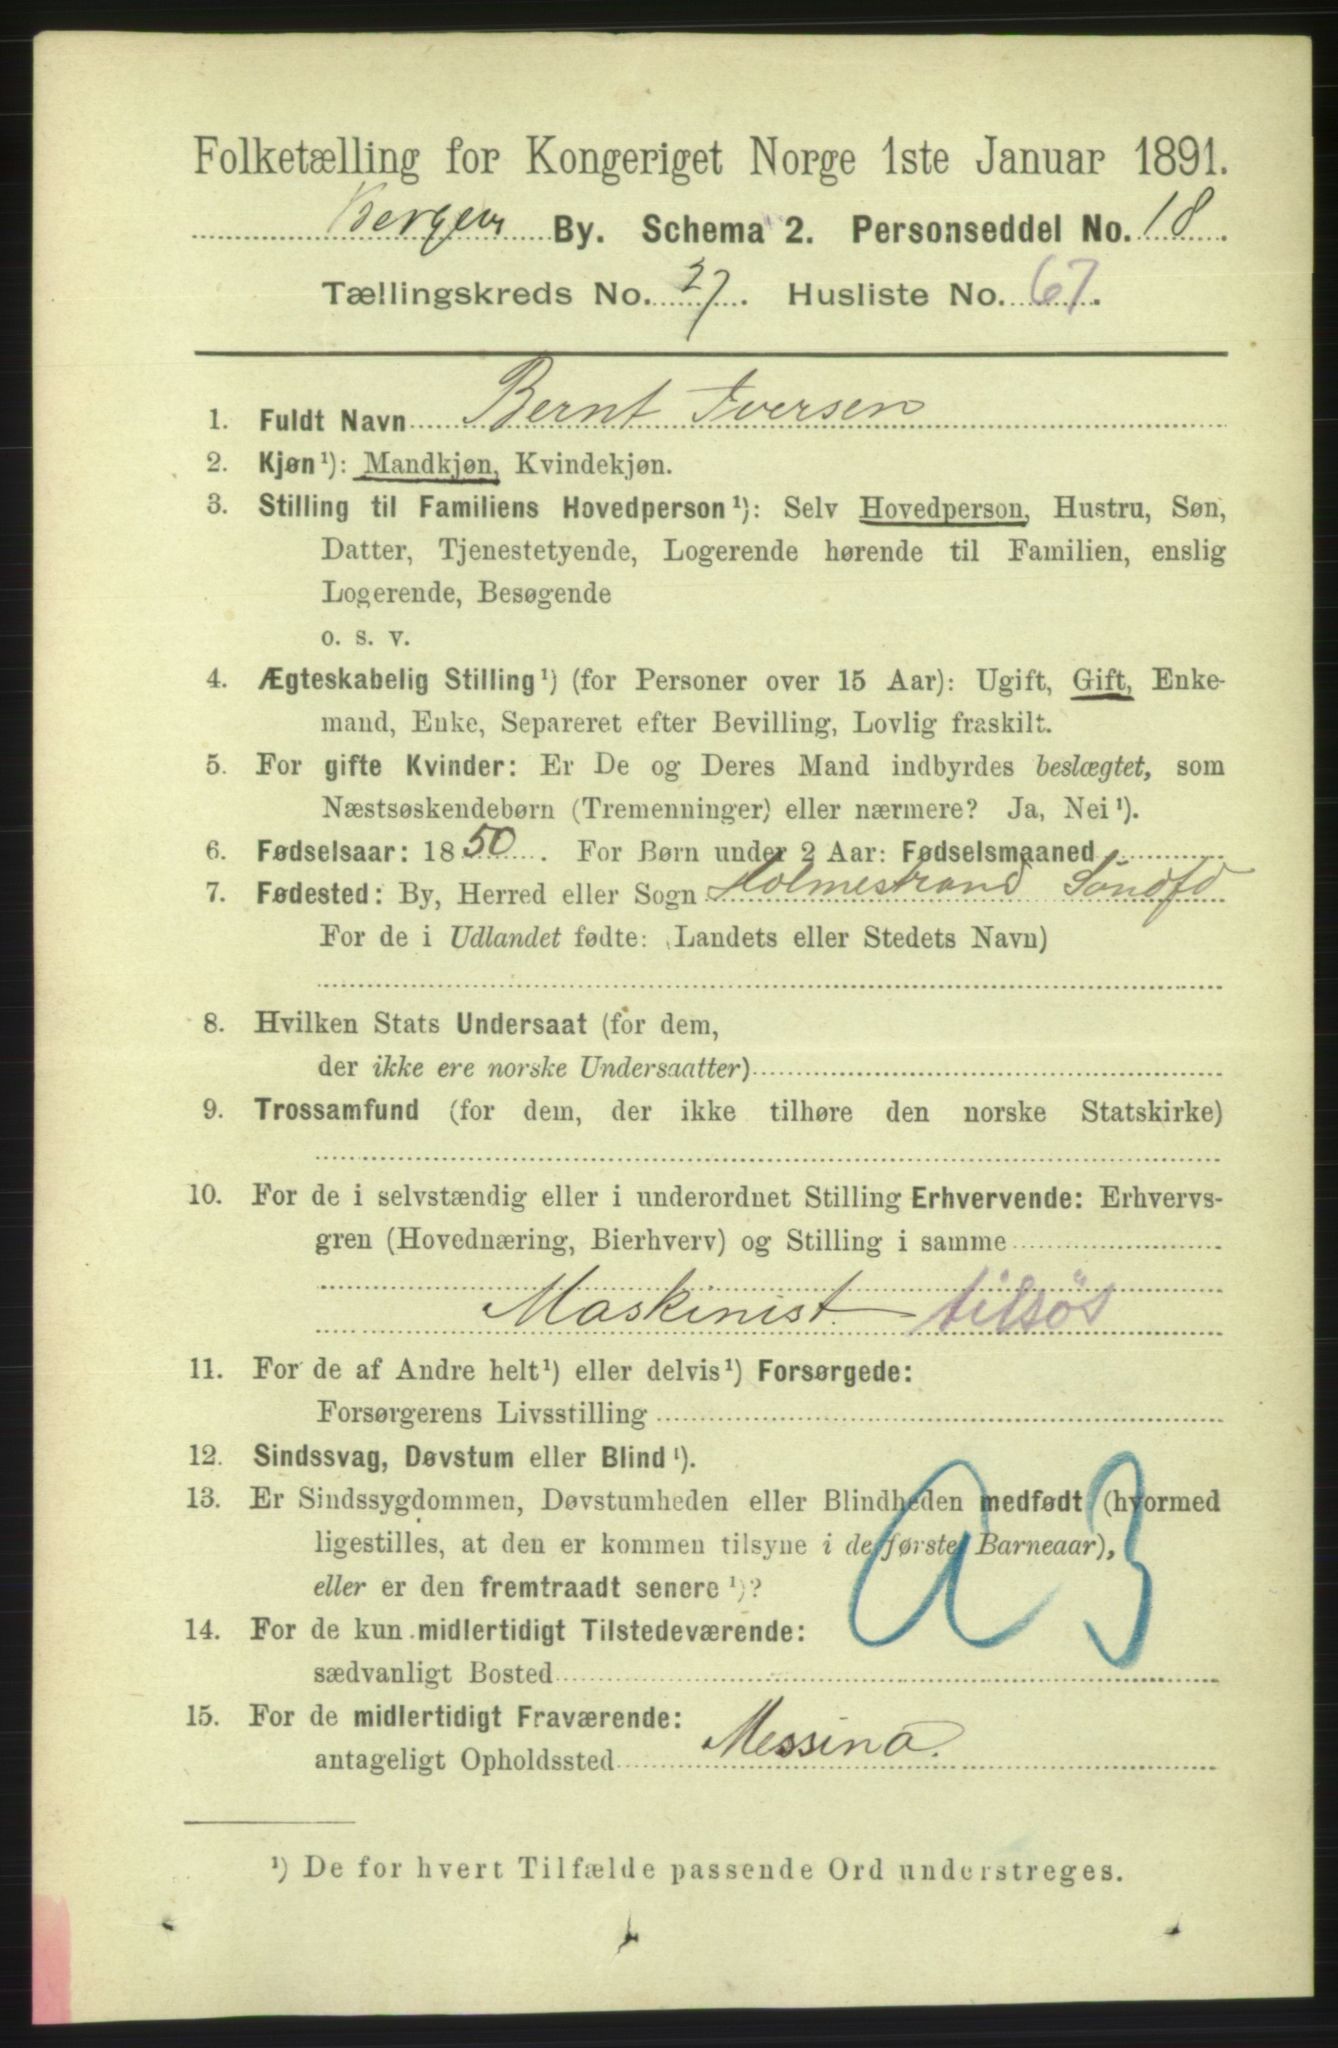 Folketælling for Kongeriget Norge 1ste Januar 1891.
Bergen By. Schema 2. Personseddel No. 18.
Tællingskreds No. 27. Husliste No. 67.
1. Fuldt Navn Bernt Iversen
2. Kjøn¹): Mandkjøn, Kvindekjøn.
3. Stilling til Familiens Hovedperson¹): Selv Hovedperson, Hustru, Søn,
Datter, Tjenestetyende, Logerende hørende til Familien, enslig
Logerende, Besøgende
o. s. v.
4. Ægteskabelig Stilling¹) (for Personer over 15 Aar): Ugift, Gift, Enke-
mand, Enke, Separeret efter Bevilling, Lovlig fraskilt.
5. For gifte Kvinder: Er De og Deres Mand indbyrdes beslægtet, som
Næstsøskendebørn (Tremenninger) eller nærmere? Ja, Nei¹).
6. Fødselsaar: 1850. For Børn under 2 Aar: Fødselsmaaned
7. Fødested: By, Herred eller Sogn Holmestrand Søndfd
For de i Udlandet fødte: (Landets eller Stedets Navn)
8. Hvilken Stats Undersaat (for dem,
der ikke ere norske Undersaatter)
9. Trossamfund (for dem, der ikke tilhøre den norske Statskirke)
10. For de i selvstændig eller i underordnet Stilling Erhvervende: Erhvervs-
gren (Hovednæring, Bierhverv) og Stilling i samme
Maskinist tilsøs
11. For de af Andre helt¹) eller delvis¹) Forsørgede:
Forsørgerens Livsstilling
12. Sindssvag, Døvstum eller Blind¹).
13. Er Sindssygdommen, Døvstumheden eller Blindheden medfødt (hvormed
ligestilles, at den er kommen tilsyne i de første Barneaar),
eller er den fremtraadt senere¹)?
a 3
14. For de kun midlertidigt Tilstedeværende:
sædvanligt Bosted
15. For de midlertidigt Fraværende:
antageligt Opholdssted Messina.
¹) De for hvert Tilfælde passende Ord understreges.